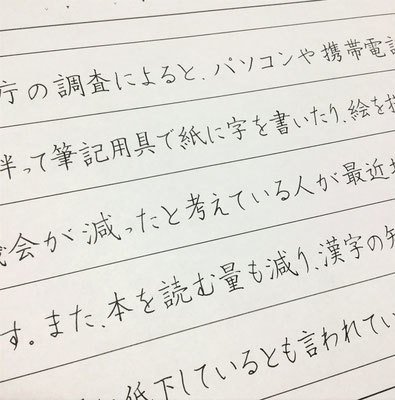 庁の調査によると、パソコンや携帯電話
伴って筆記用具で紙に字を書いたり、絵を
会が減ったと考えている人が最近
す。また、本を読む量も減り、漢字の知
低下しているとも言われてい